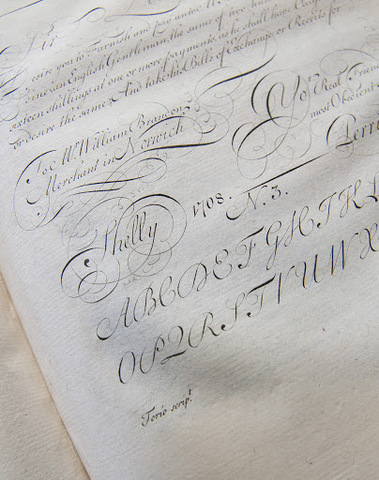 Desire you to Furnish and pay unto
an English Gentleman the sume of two
sixteen shillings at one or more payments, as he shall have
or desire the same And take his Bills of Exchange or Receits for
To Mr. William
Merchant in Norwich
Yor Real Friend
most Obedient
Shelly 1708. No. 3.
A B C D E F G H I K L
O P Q R S T V U W X
scrip.t